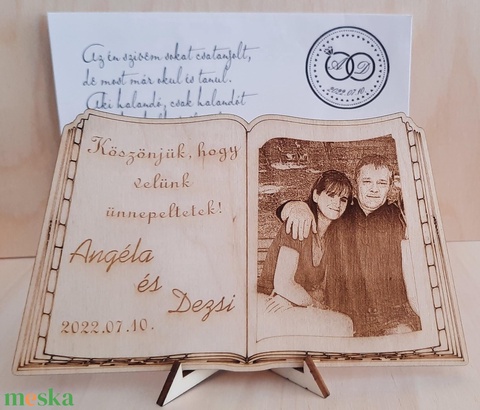 Az én szívem sokat csatangolt,
de most már okul és tanul.
Aki halandó, csak halandót
A D
2022.07.10.
Köszönjük, hogy
velünk
ünnepeltetek!
Angéla
és
Dezsi
2022.07.10.
meska